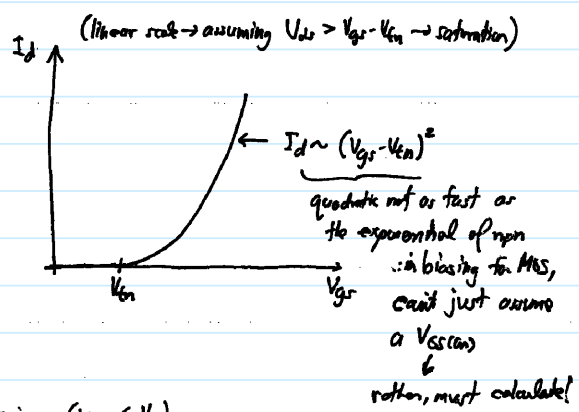 (linear scale → assuming Vds > Vgs-Vtn → saturation)
Id
← Id ~ (Vgs-Vtn)²
quadratic not as fast as
the exponential of npn
∴ in biasing for MOS,
can't just assume
a VGS(on)
rather, must calculate!
Vtn
Vgs